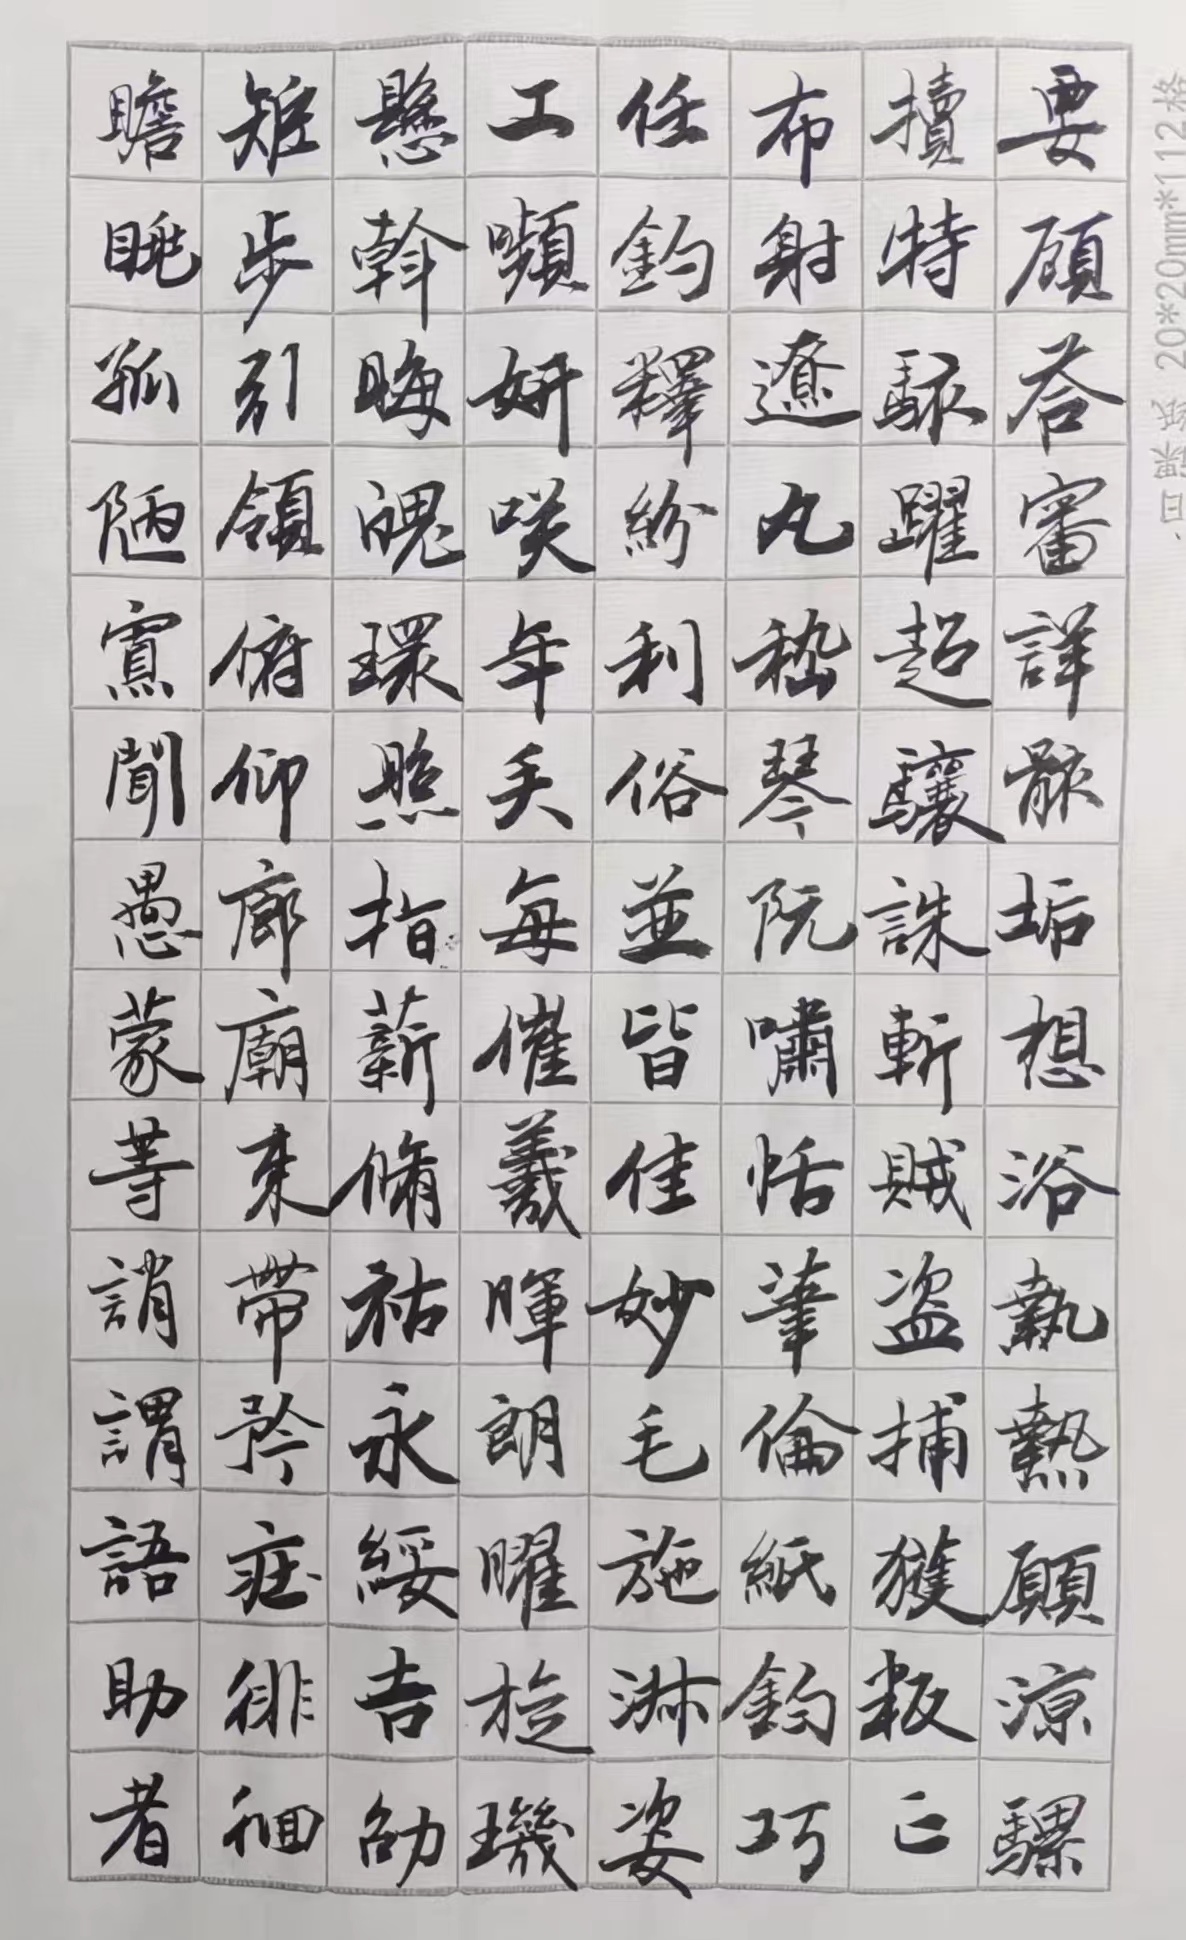 要顧荅審詳骸垢想浴執熱願涼騾
犢特駭躍超驤誅斬賊盗捕獲叛亡
布射遼丸嵇琴阮嘯恬筆倫紙鈞巧
任釣釋紛利俗並皆佳妙毛施淋姿
工嚬妍咲年矢每催羲暉朗曜旋璣
懸斡晦魄環照指薪脩祜永綏吉劭
矩步引領俯仰廊廟束帶矜莊徘徊
瞻眺孤陋寡聞愚蒙等誚謂語助者
20*20mm*112格